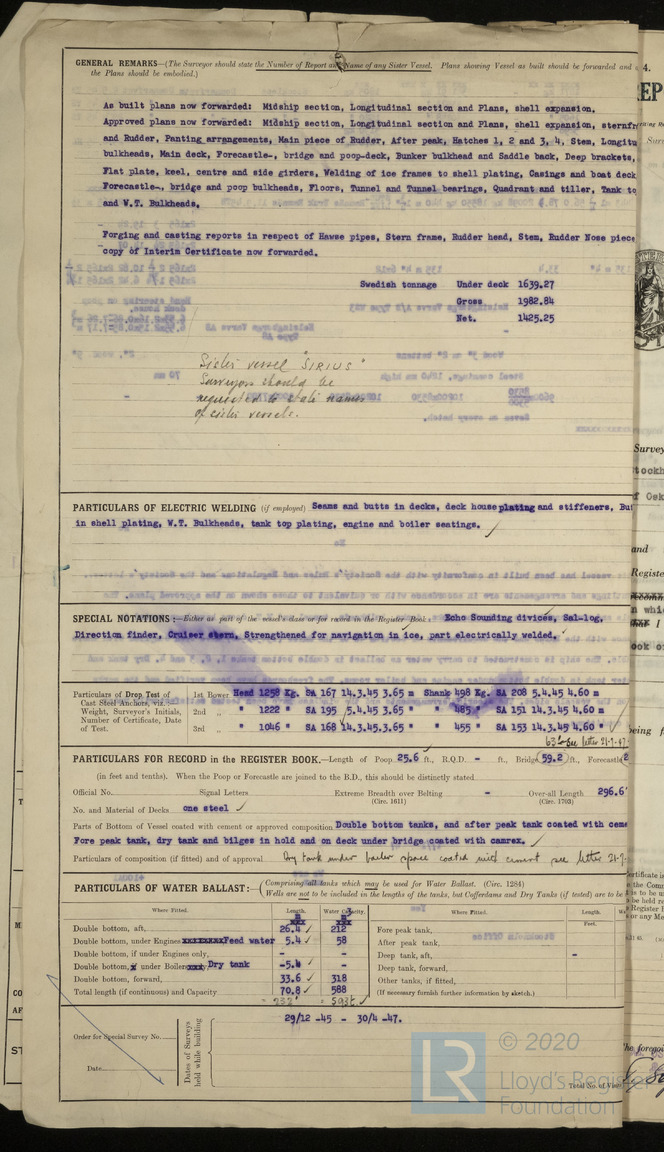 GENERAL REMARKS—(The Surveyor should state the Number of Report and Name of any Sister Vessel. Plans showing Vessel as built should be forwarded and
the Plans should be embodied.)
As built plans now forwarded: Midship section, Longitudinal section and Plans, shell expansion,
Approved plans now forwarded: Midship section, Longitudinal section and Plans, shell expansion, sternfr
and Rudder, Panting arrangements, Main piece of Rudder, After peak, Hatches 1, 2 and 3, 4, Stem, Longitu
bulkheads, Main deck, Forecastle-, bridge and poop-deck, Bunker bulkhead and Saddle back, Deep brackets,
Flat plate, keel, centre and side girders, Welding of ice frames to shell plating, Casings and boat deck
Forecastle-, bridge and poop bulkheads, Floors, Tunnel and Tunnel bearings, Quadrant and tiller, Tank to
and W.T. Bulkheads.
Forging and casting reports in respect of Hawse pipes, Stern frame, Rudder head, Stem, Rudder Nose piece
copy of Interim Certificate now forwarded.
Swedish tonnage Under deck 1639.27
Gross 1982.84
Net. 1425.25
Sister vessel "SIRIUS"
Surveyors should be
requested to state names
of sister vessels.
PARTICULARS OF ELECTRIC WELDING (if employed) Seams and butts in decks, deck house plating and stiffeners, Bu
in shell plating, W.T. Bulkheads, tank top plating, engine and boiler seatings.
SPECIAL NOTATIONS:—Either as part of the vessel's class or for record in the Register Book: Echo Sounding divices, Sal-log,
Direction finder, Cruiser stern, Strengthened for navigation in ice, part electrically welded.
Particulars of Drop Test of 1st Bower Head 1258 Kg. SA 167 14.3.45 3.65 m Shank 498 Kg. SA 208 5.4.45 4.60 m
Cast Steel Anchors, viz.:—
Weight, Surveyor's Initials, 2nd " " 1222 " SA 195 5.4.45 3.65 " " 485 " SA 151 14.3.45 4.60 m
Number of Certificate, Date
of Test. 3rd " " 1046 " SA 168 14.3.45.3.65 " " 455 " SA 153 14.3.45 4.60 "
see letter 21-7-47
PARTICULARS FOR RECORD in the REGISTER BOOK.—Length of Poop 25.6 ft., R.Q.D. - ft., Bridge 59.2 ft., Forecastle 2
(in feet and tenths). When the Poop or Forecastle are joined to the B.D., this should be distinctly stated
Official No. Signal Letters Extreme Breadth over Belting - Over-all Length 296.6'
(Circ. 1611) (Circ. 1703)
No. and Material of Decks one steel
Parts of Bottom of Vessel coated with cement or approved composition Double bottom tanks, and after peak tank coated with ceme
Fore peak tank, dry tank and bilges in hold and on deck under bridge coated with camrex.
Particulars of composition (if fitted) and of approval Dry tank under boiler space coated with cement see letter 21-7-
PARTICULARS OF WATER BALLAST:— Comprising all tanks which may be used for Water Ballast. (Circ. 1284)
Wells are not to be included in the lengths of the tanks, but Cofferdams and Dry Tanks (if tested) are to be
Where Fitted. Length. Water Capacity. Where Fitted. Length. Wa
Feet.
Double bottom, aft, 26.4 212 Fore peak tank,
Double bottom, under Engines Feed water 5.4 58 After peak tank,
Double bottom, if under Engines only, - - Deep tank, aft, -
Double bottom, under Boilers Dry tank -5.4 - Deep tank, forward,
Double bottom, forward, 33.6 318 Other tanks, if fitted,
Total length (if continuous) and Capacity 70.8 588 (If necessary furnish further information by sketch.)
= 232'
Order for Special Survey No.
Date
Dates of Surveys held while building
29/12 -45 - 30/4 -47.
Total No. of Vis
4.
REP
Surv
Survey
tockh
f Osk
and
Registe
n whic
ook o
eing f
ertificate is
the Com
or any Me
he foregoi
LR
© 2020
Lloyd's Register
Foundation